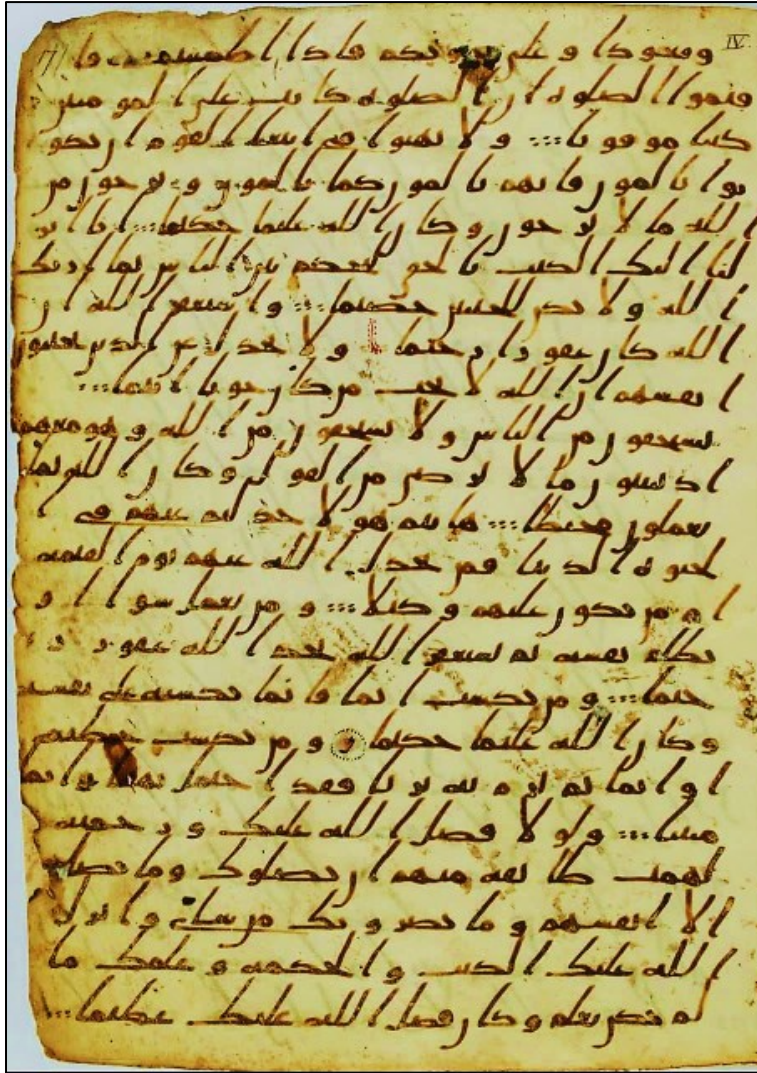 IV
وقعودا وعلى جنوبكم فاذا اطمننتم فا
قيموا الصلوة ان الصلوة كانت على المومنين
كتبا موقوتا ولا تهنوا في ابتغا القوم ان تكو
نوا تالمون فانهم يالمون كما تالمون وترجون من
الله ما لا يرجون وكان الله عليما حكيما انا انز
لنا اليك الكتب بالحق لتحكم بين الناس بما اريك
الله ولا تكن للخنين خصيما واستغفر الله ان
الله كان غفورا رحيما ولا تجدل عن الذين يختنون
انفسهم ان الله لا يحب من كان خونا اثيما
يستخفون من الناس ولا يستخفون من الله وهو معهم
اذ يبيتون ما لا يرضى من القول وكان الله بما
يعملون محيطا هانتم هولا جدلتم عنهم في ا
لحيوة الدنيا فمن يجدل الله عنهم يوم القيمة
ام من يكون عليهم وكيلا ومن يعمل سوا او
يظلم نفسه ثم يستغفر الله يجد الله غفورا ر
حيما ومن يكسب اثما فانما يكسبه على نفسه
وكان الله عليما حكيما ومن يكسب خطية
او اثما ثم يرم به بريا فقد احتمل بهتنا واثما
مبينا ولولا فضل الله عليك ورحمته
لهمت طيفة منهم ان يضلوك وما يضلون
الا انفسهم وما يضرونك من شاي وانزل
الله عليك الكتب والحكمة وعلمك ما
لم تكن تعلم وكان فضل الله عليك عظيما